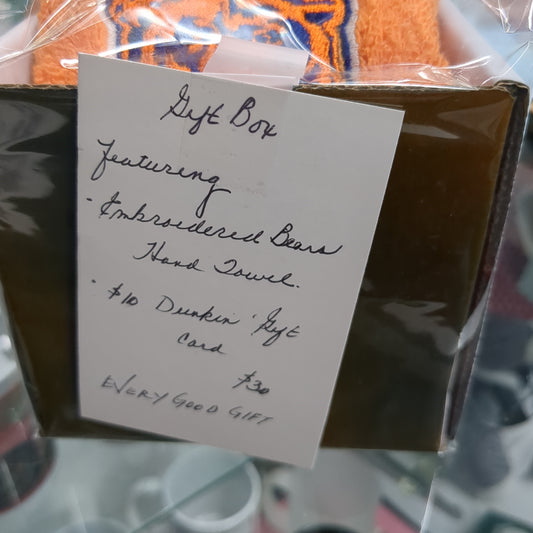 Gift Box
featuring
· Embroidered Bears
Hand Towel.
· $10 Dunkin' Gift
Card
$30
EVERY GOOD GIFT